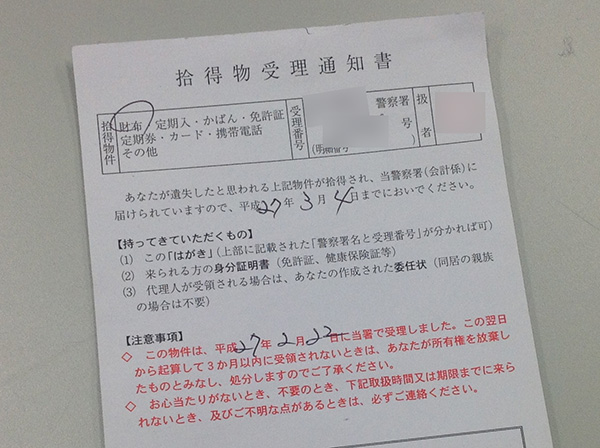 拾得物受理通知書
拾得物件
財布・定期入・かばん・免許証
定期券・カード・携帯電話
その他
受理番号
警察署
号
(明細番号
扱者
あなたが遺失したと思われる上記物件が拾得され、当警察署(会計係)に
届けられていますので、平成27年3月4日までにおいでください。
【持ってきていただくもの】
(1) この「はがき」(上部に記載された「警察署名と受理番号」が分かれば可)
(2) 来られる方の身分証明書(免許証、健康保険証等)
(3) 代理人が受領される場合は、あなたの作成された委任状(同居の親族
の場合は不要)
【注意事項】
◇ この物件は、平成27年2月22日に当署で受理しました。この翌日
から起算して3か月以内に受領されないときは、あなたが所有権を放棄し
たものとみなし、処分しますのでご了承ください。
◇ お心当たりがないとき、不要のとき、下記取扱時間又は期限までに来ら
れないとき、及びご不明な点があるときは、必ずご連絡ください。